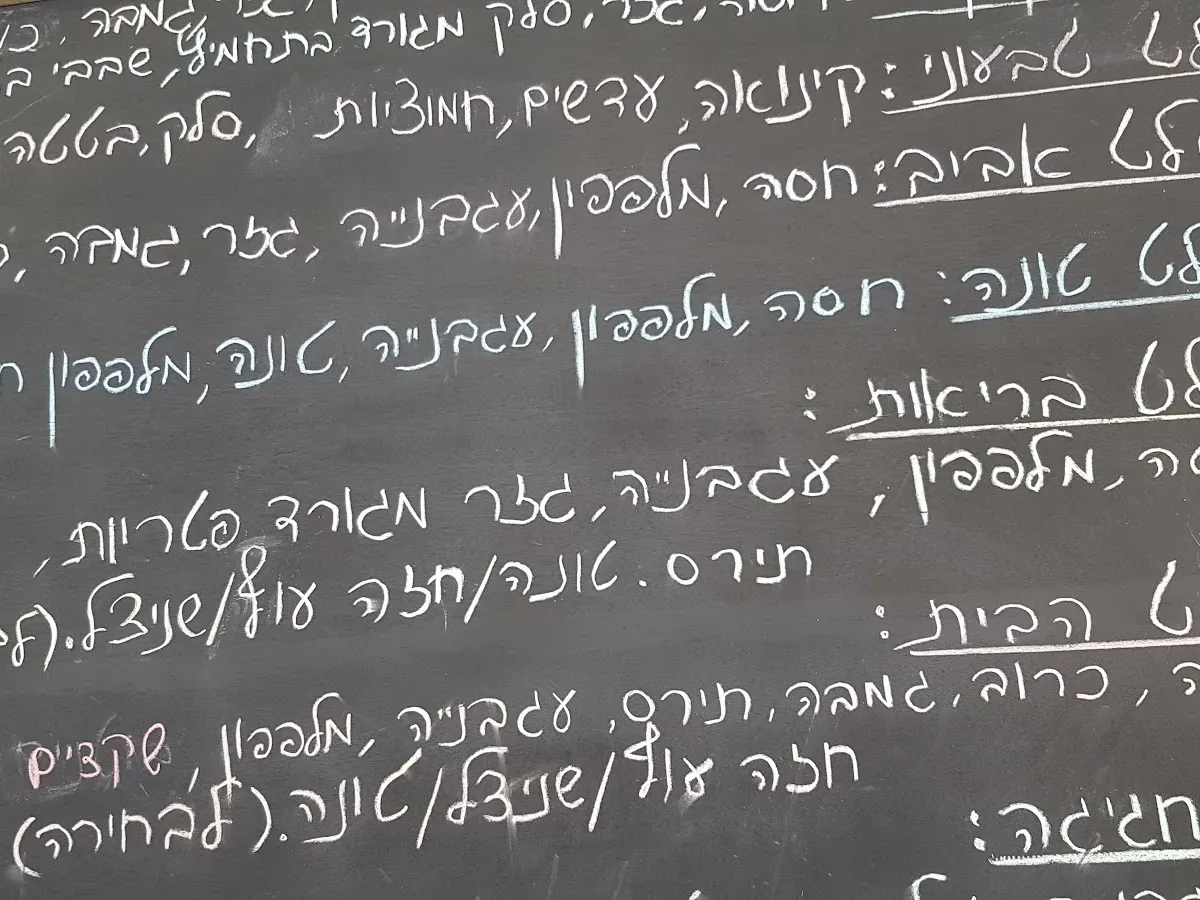 גמבה,
חסה, גזר, סלק מגורד בתחמיץ, שבבי
טבעוני: קינואה, עדשים, חמוציות, סלק, בטטה
אביב: חסה, מלפפון, עגבנייה, גזר, גמבה,
טונה: חסה, מלפפון, עגבנייה, טונה, מלפפון
בריאות:
מלפפון, עגבנייה, גזר מגורד, פטריות,
תירס. טונה/חזה עוף/שניצל.
הבית:
כרוב, גמבה, תירס, עגבנייה, מלפפון, שקצ״ים
חזה עוף/שניצל/טונה. (לבחירה)
חגיגה: